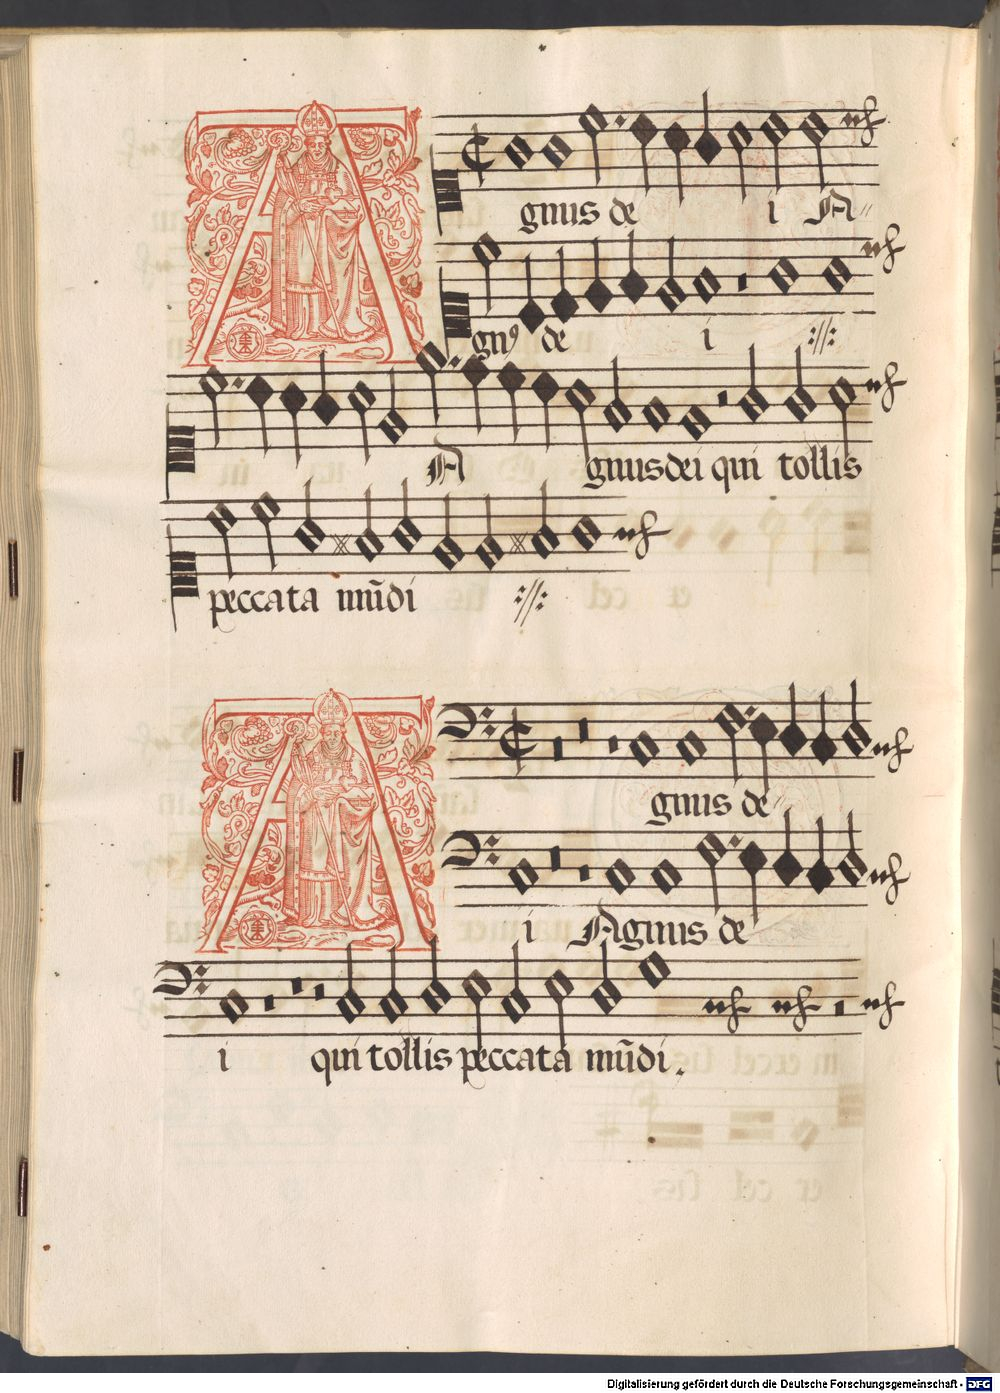 Agnus de i A
gnꝰ de i ://:
A gnus dei qui tollis
peccata mūdi ://:
Agnus de
i Agnus de
i qui tollis peccata mūdi.
Digitalisierung gefördert durch die Deutsche Forschungsgemeinschaft - DFG